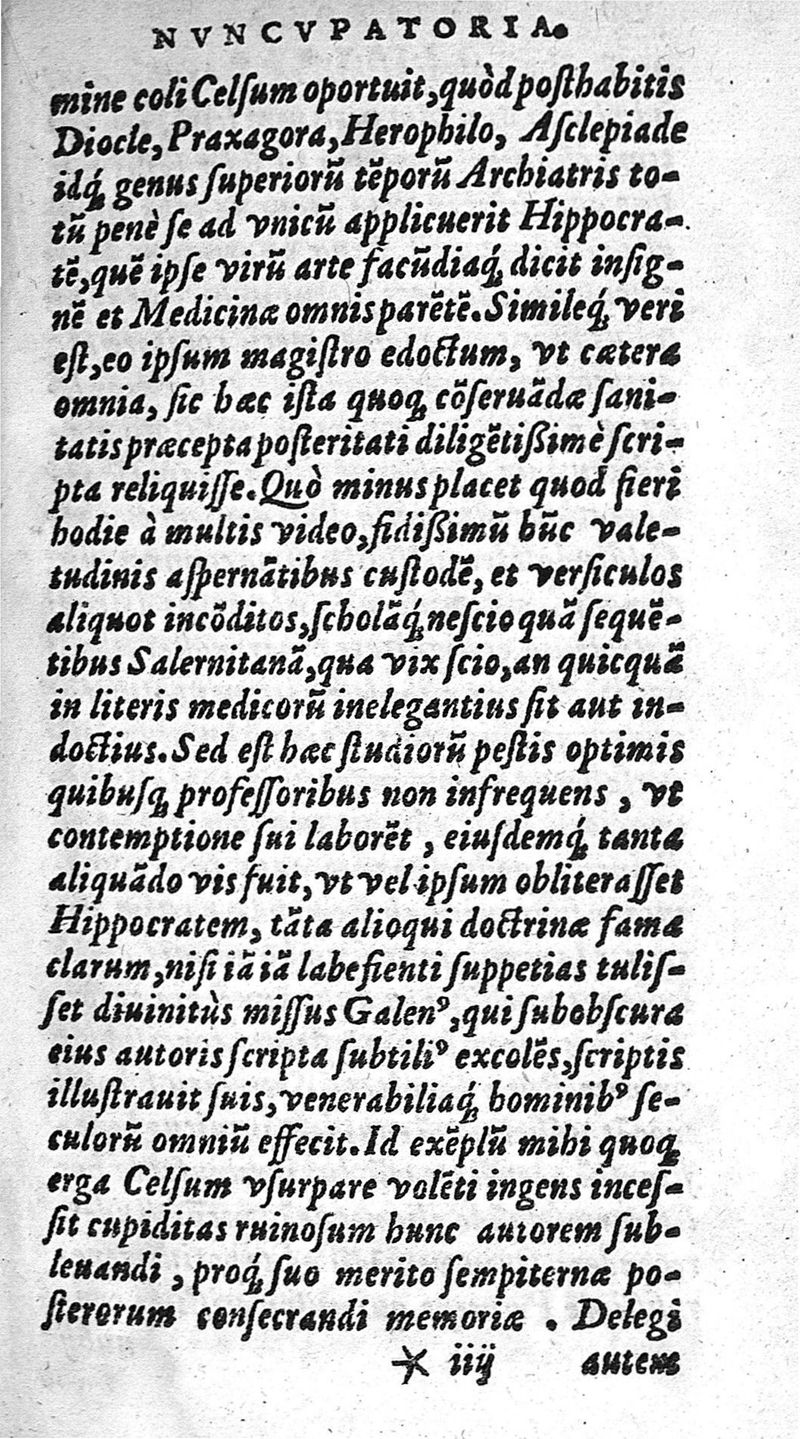 NVNCVPATORIA.
mine coli Celſum oportuit, quòd poſthabitis
Diocle, Praxagora, Herophilo, Aſclepiade
idq́; genus ſuperiorũ tẽporũ Archiatris to-
tũ penè ſe ad vnicũ applicuerit Hippocra-
tẽ, quẽ ipſe virũ arte facũdiaq́; dicit inſig-
nẽ et Medicinæ omnis parẽtẽ. Simileq́; veri
eſt, eo ipſum magiſtro edoctum, vt cætera
omnia, ſic hæc iſta quoq; cõſeruãdæ ſani-
tatis præcepta poſteritati diligẽtißimè ſcri-
pta reliquiſſe. Quò minus placet quod fieri
hodie à multis video, fidißimũ hũc vale-
tudinis aſpernãtibus cuſtodẽ, et verſiculos
aliquot incõditos, ſcholãq́; neſcio quã ſequẽ-
tibus Salernitanã, qua vix ſcio, an quicquã
in literis medicorũ inelegantius ſit aut in-
doctius. Sed eſt hæc ſtudiorũ peſtis optimis
quibuſq; profeſſoribus non infrequens, vt
contemptione ſui laborẽt, eiuſdemq́; tanta
aliquãdo vis fuit, vt vel ipſum obliteraſſet
Hippocratem, tãta alioqui doctrinæ fama
clarum, niſi iã iã labefienti ſuppetias tuliſ-
ſet diuinitùs miſſus Galenꝰ, qui ſubobſcura
eius autoris ſcripta ſubtiliꝰ excolẽs, ſcriptis
illuſtrauit ſuis, venerabiliaq́; hominibꝰ ſe-
culorũ omniũ effecit. Id exẽplũ mihi quoq;
erga Celſum vſurpare volẽti ingens inceſ-
ſit cupiditas ruinoſum hunc autorem ſub-
leuandi, proq́; ſuo merito ſempiternæ po-
ſterorum conſecrandi memoriæ. Delegi
* iiij autem